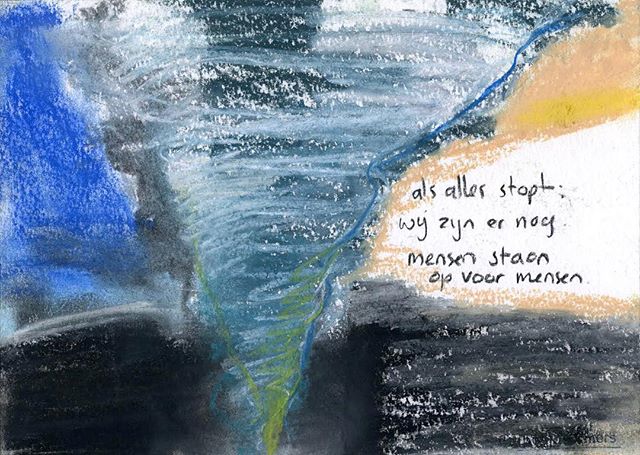 als alles stopt:
wij zijn er nog
mensen staan
op voor mensen.